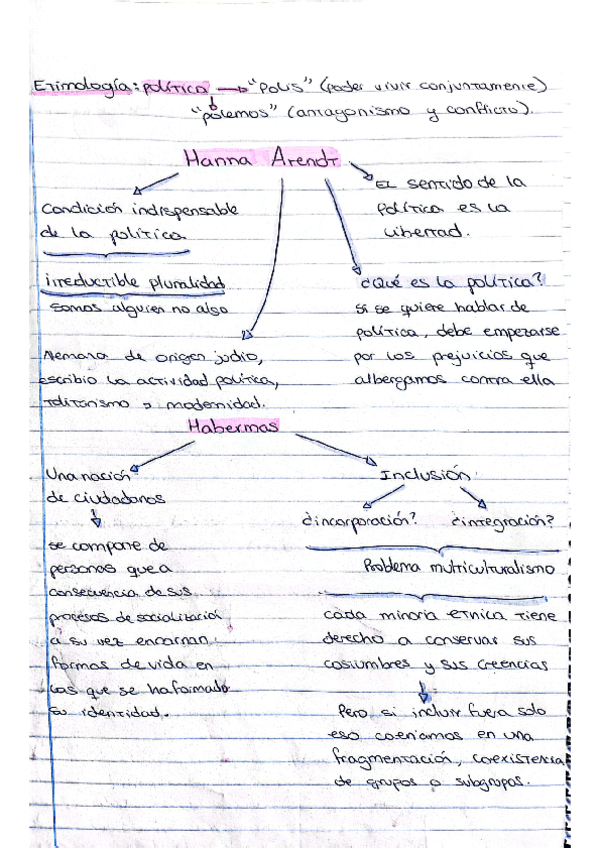 Etimología: política → "Polis" (poder vivir conjuntamente)
"polemos" (antagonismo y conflicto).
Hanna Arendt
El sentido de la
política es la
libertad.
Condición indispensable
de la política
irreductible pluralidad
somos alguien no algo
¿Qué es la política?
si se quiere hablar de
política, debe empezarse
por los prejuicios que
albergamos contra ella
Alemana de origen judio,
escribio la actividad política,
modernidad.
Habermas
Una nación
de ciudadanos
se compone de
personas que a
consecuencia de sus
procesos de socialización
a su vez encarnan
formas de vida en
las que se ha formado
su identidad.
Inclusión
¿incorporación? ¿integración?
Problema multiculturalismo
cada minoria etnica tiene
derecho a conservar sus
costumbres y sus creencias
Pero si incluir fuera solo
eso caeríamos en una
fragmentación, coexistencia
de grupos o subgrupos.